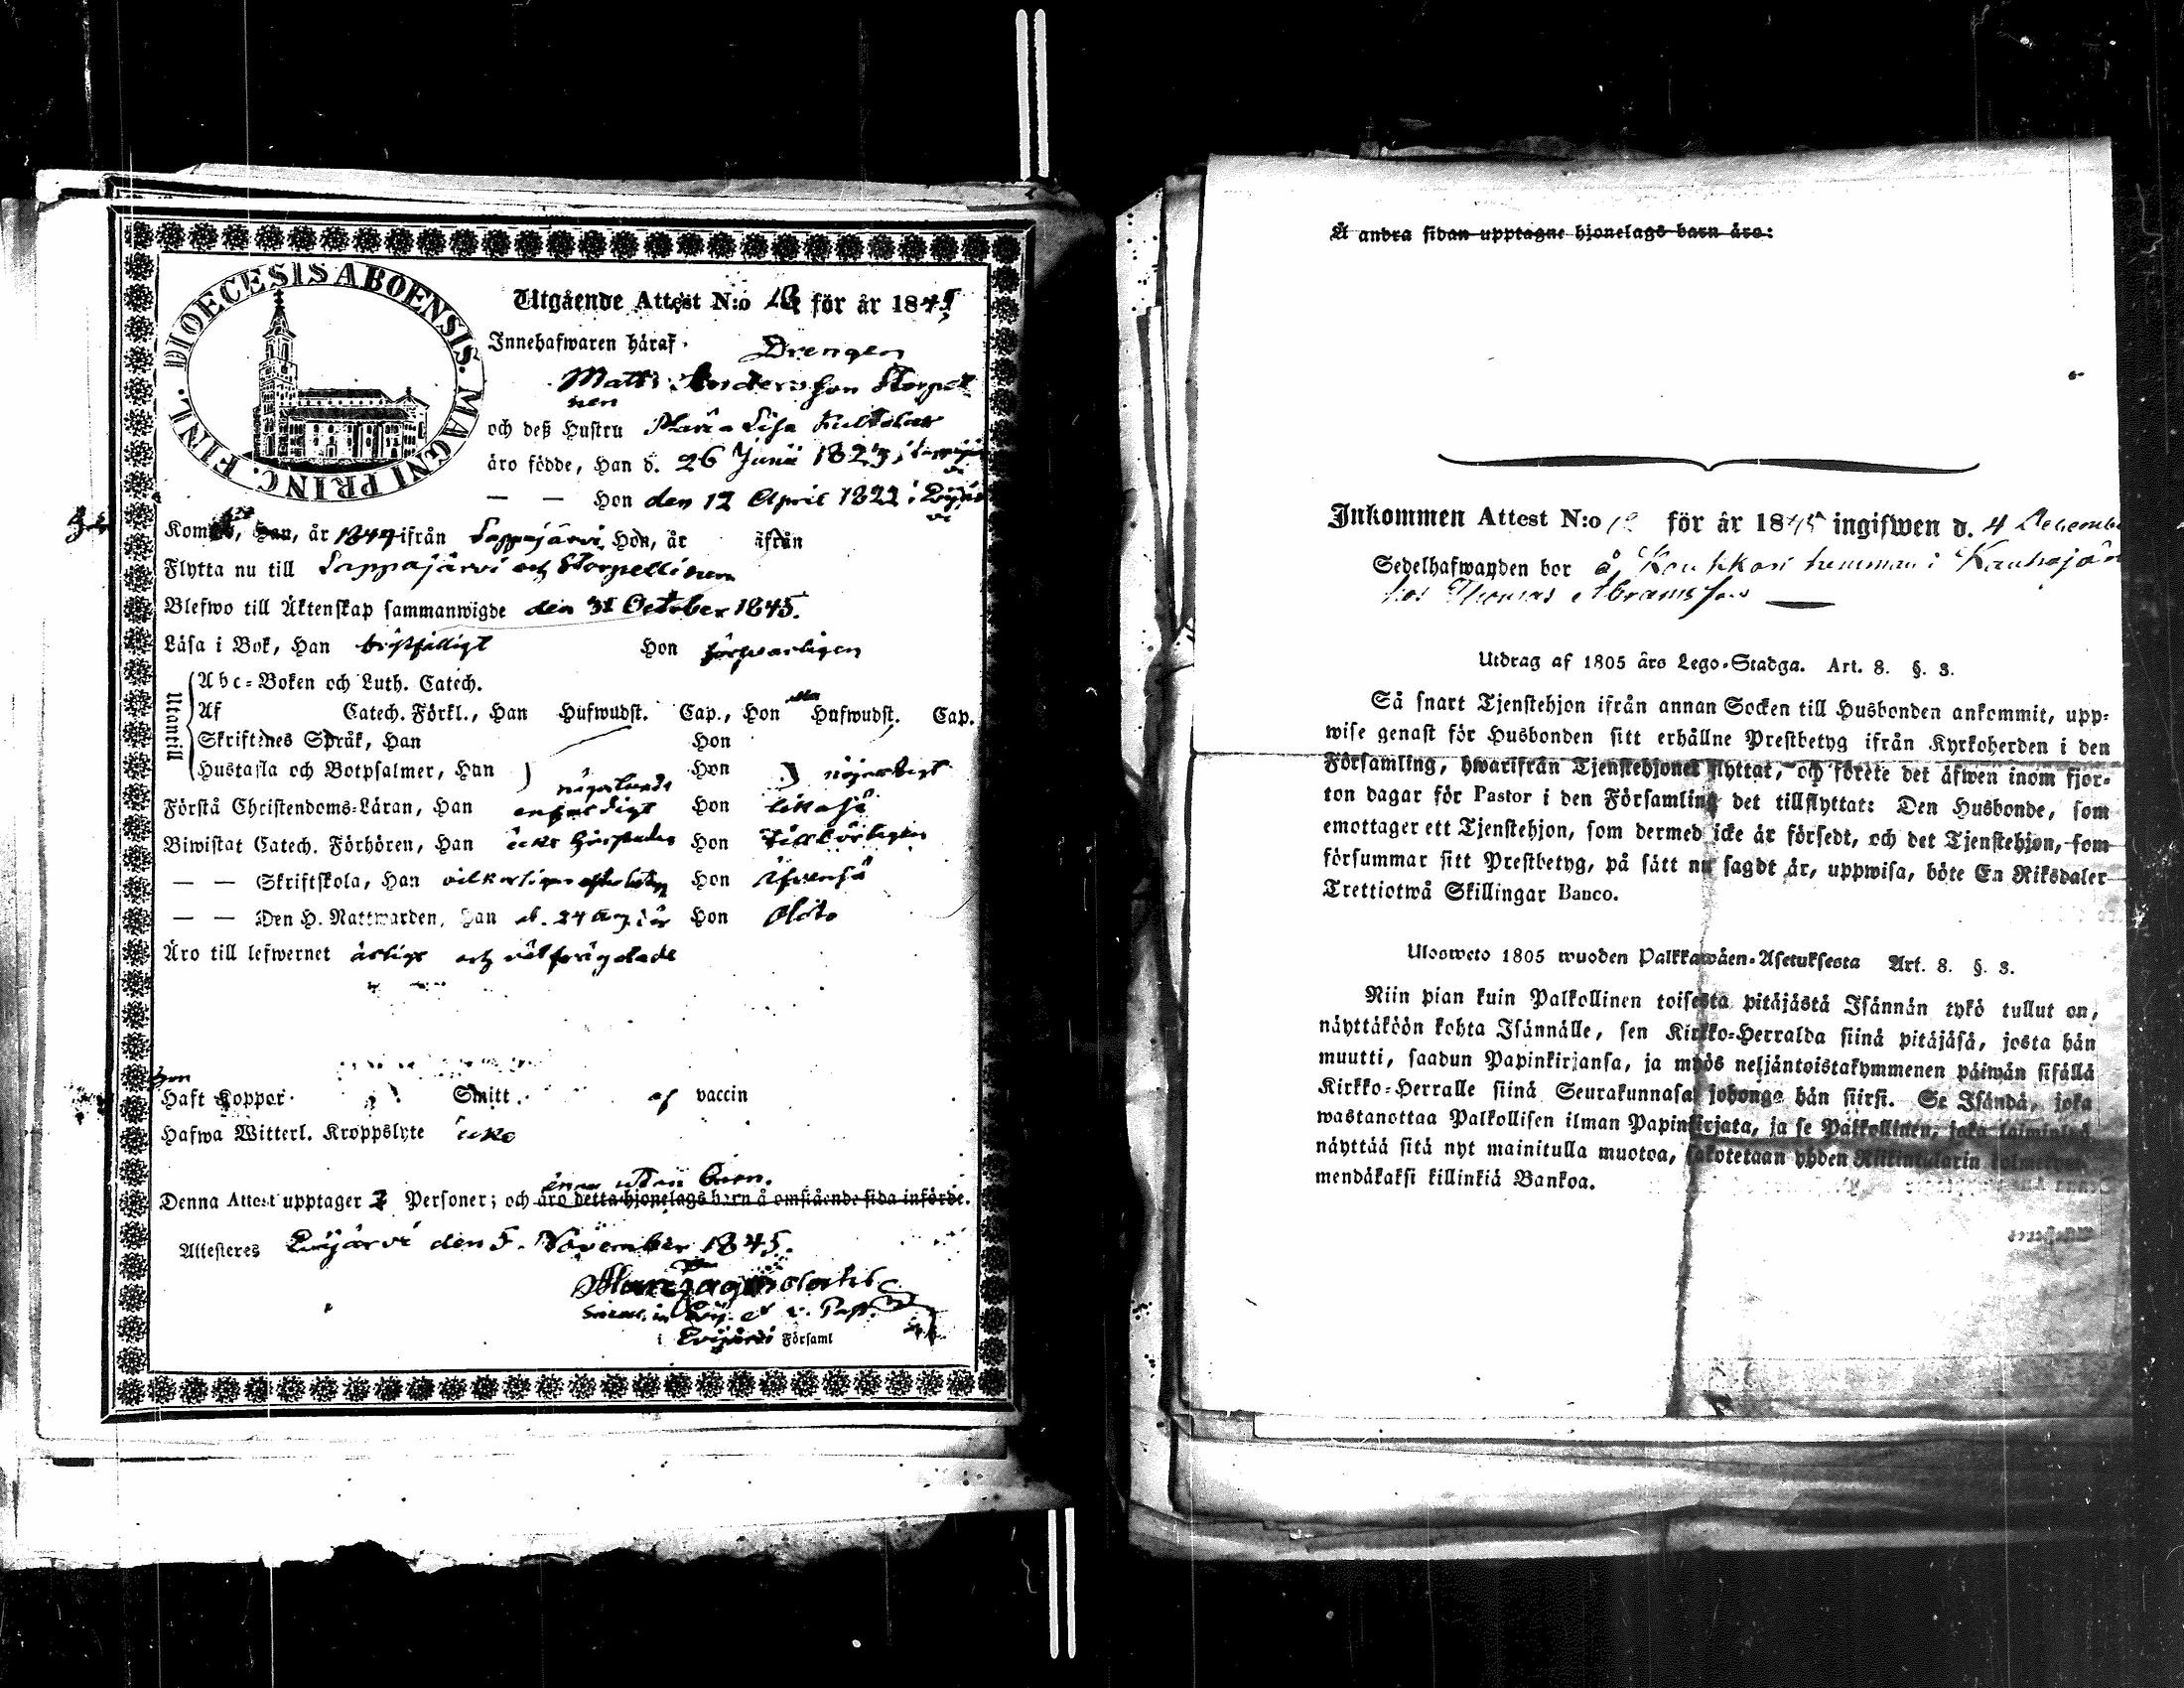 DIOECESIS ABOENSIS. MAGNI PRINC. FINL.
Utgående Attest N:o för år 1845
Innehafwaren häraf Drengen
Matts Andersson Torpel
nen
och deß Hustru Maria Lisa
äro födde, Han d. 26 Junii 1823 i
— — Hon den 12 April 1822 i Evijär
vi
Kom Han, år 1844 ifrån Lappajärvi, Hon, år ifrån
Flytta nu till Lappajärvi och Torpellinen
Blefwo till Äktenskap sammanwigde den 31 October 1845.
Läsa i Bok, Han Hon försvarligen
Utantill
Abc-Boken och Luth. Catech.
Af Catech. Förkl., Han Hufwudst. Cap., Hon Hufwudst. Cap.
Skriftenes Språk, Han Hon
Hustafla och Botpsalmer, Han Hon nöjaktigt
någorlunda
Förstå Christendoms-Läran, Han enfaldigt Hon likaså
Biwistat Catech. Förhören, Han icke Hon tillbörligen
— — Skriftskola, Han Hon äfvenså
— — Den H. Nattwarden, Han d. 24 Aug. i år Hon
Äro till lefwernet ärlige och välfrägdade
Hon
Haft Koppor Smitt. af vaccin
Hafwa Witterl. Kroppslyte icke
ännu utan barn.
Denna Attest upptager 2 Personer; och äro detta hjonelags barn å omstående sida införde.
Attesteres Evijärvi den 5. November 1845.
i Evijärvi Församl
Å andra sidan upptagne hjonelags barn äro:
Inkommen Attest N:o 12 för år 1845 ingifwen d. 4 Decembe
Sedelhafwanden bor å hemman i Kauhajär
hos Thomas Abramsson
Utdrag af 1805 års Lego-Stadga. Art. 8. §. 3.
Så snart Tjenstehjon ifrån annan Socken till Husbonden ankommit, upp-
wise genast för Husbonden sitt erhållne Prestbetyg ifrån Kyrkoherden i den
Församling, hwarifrån Tjenstehjonet flyttat, och förete det äfwen inom fjor-
ton dagar för Pastor i den Församling det tillflyttat: Den Husbonde, som
emottager ett Tjenstehjon, som dermed icke är försedt, och det Tjenstehjon, som
försummar sitt Prestbetyg, på sätt nu sagdt är, uppwisa, böte En Riksdaler
Trettiotwå Skillingar Banco.
Ulosweto 1805 wuoden Palkkawäen-Asetuksesta Art. 8. §. 3.
Niin pian kuin Palkollinen toisesta pitäjästä Isännän tykö tullut on,
näyttäköön kohta Isännälle, sen Kirkko-Herralda siinä pitäjäsä, josta hän
muutti, saadun Papinkirjansa, ja myös neljäntoistakymmenen päiwän sisällä
Kirkko-Herralle siinä Seurakunnasa johonga hän siirsi. Se Isändä, joka
wastanottaa Palkollisen ilman Papinkirjata, ja se Palkollinen, joka laiminlyö
näyttää sitä nyt mainitulla muotoa, sakotetaan yhden Riikintalarin kolmekym-
mendäkaksi killinkiä Bankoa.